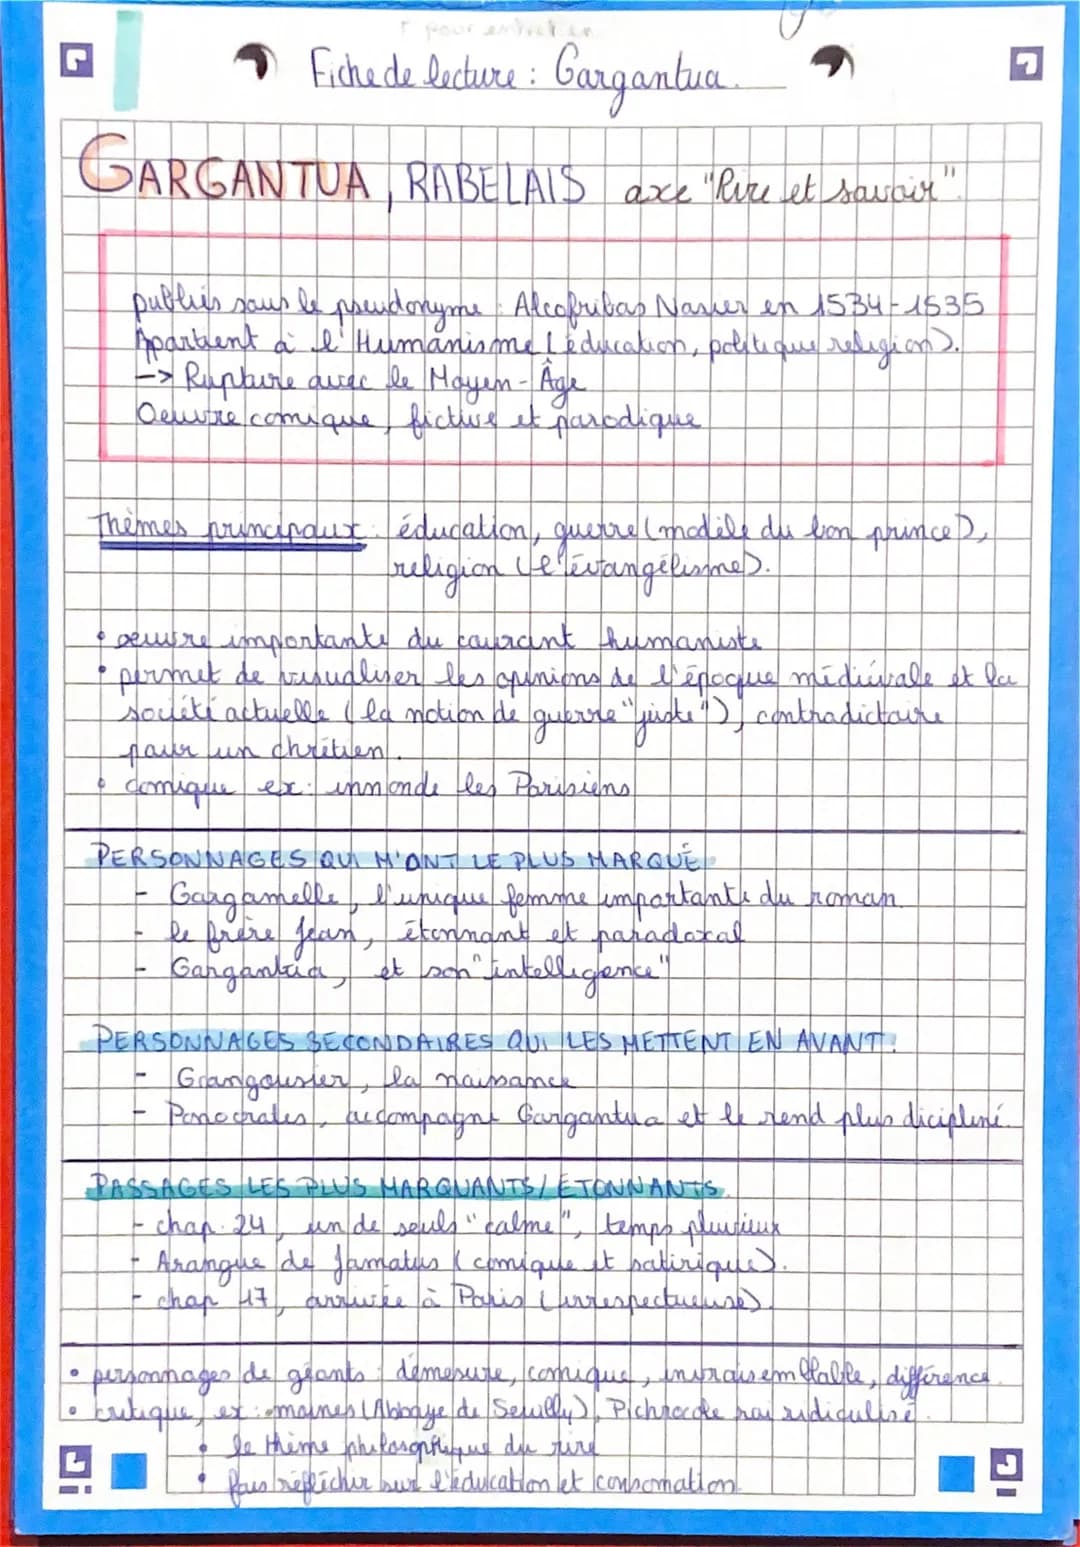 pour entretien
Fiche de lecture : Gargantua.
GARGANTUA, RABELAIS axe "Rire et savoir".
publiés sous le pseudonyme : Alcofribas Nasier en 1534-1535
Apartient à l'Humanisme (éducation, politique, religion).
-> Rupture avec le Moyen-Âge
Oeuvre comique, fictive et parodique
Thèmes principaux : éducation, guerre (modèle du bon prince),
religion (l'évangélisme).
• oeuvre importante du courant humaniste
• permet de visualiser les opinions de l'époque médiévale et la
société actuelle (la notion de guerre "juste"), contradictoire
pour un chrétien.
• comique ex : innonde les Parisiens
PERSONNAGES QUI M'ONT LE PLUS MARQUÉ
- Gargamelle, l'unique femme importante du roman.
- le frère Jean, étonnant et paradoxal
- Gargantua, et son "intelligence"
PERSONNAGES SECONDAIRES QUI LES METTENT EN AVANT :
- Grangousier, la naissance
- Ponocrates, accompagne Gargantua et le rend plus dicipliné.
PASSAGES LES PLUS MARQUANTS/ÉTONNANTS.
- chap. 24, un de seuls "calme", temps pluvieux
- Arangue de Jamatus (comique et satirique).
- chap 17, arrivée à Paris (irrespectueuse).
• personnages de géants : démesure, comique, invraisemblable, différence.
• critique, ex : moines (Abbaye de Seuilly), Pichrocole roi ridiculisé.
• le thème philosophique du rire
• fais réfléchir sur l'éducation et consomation.